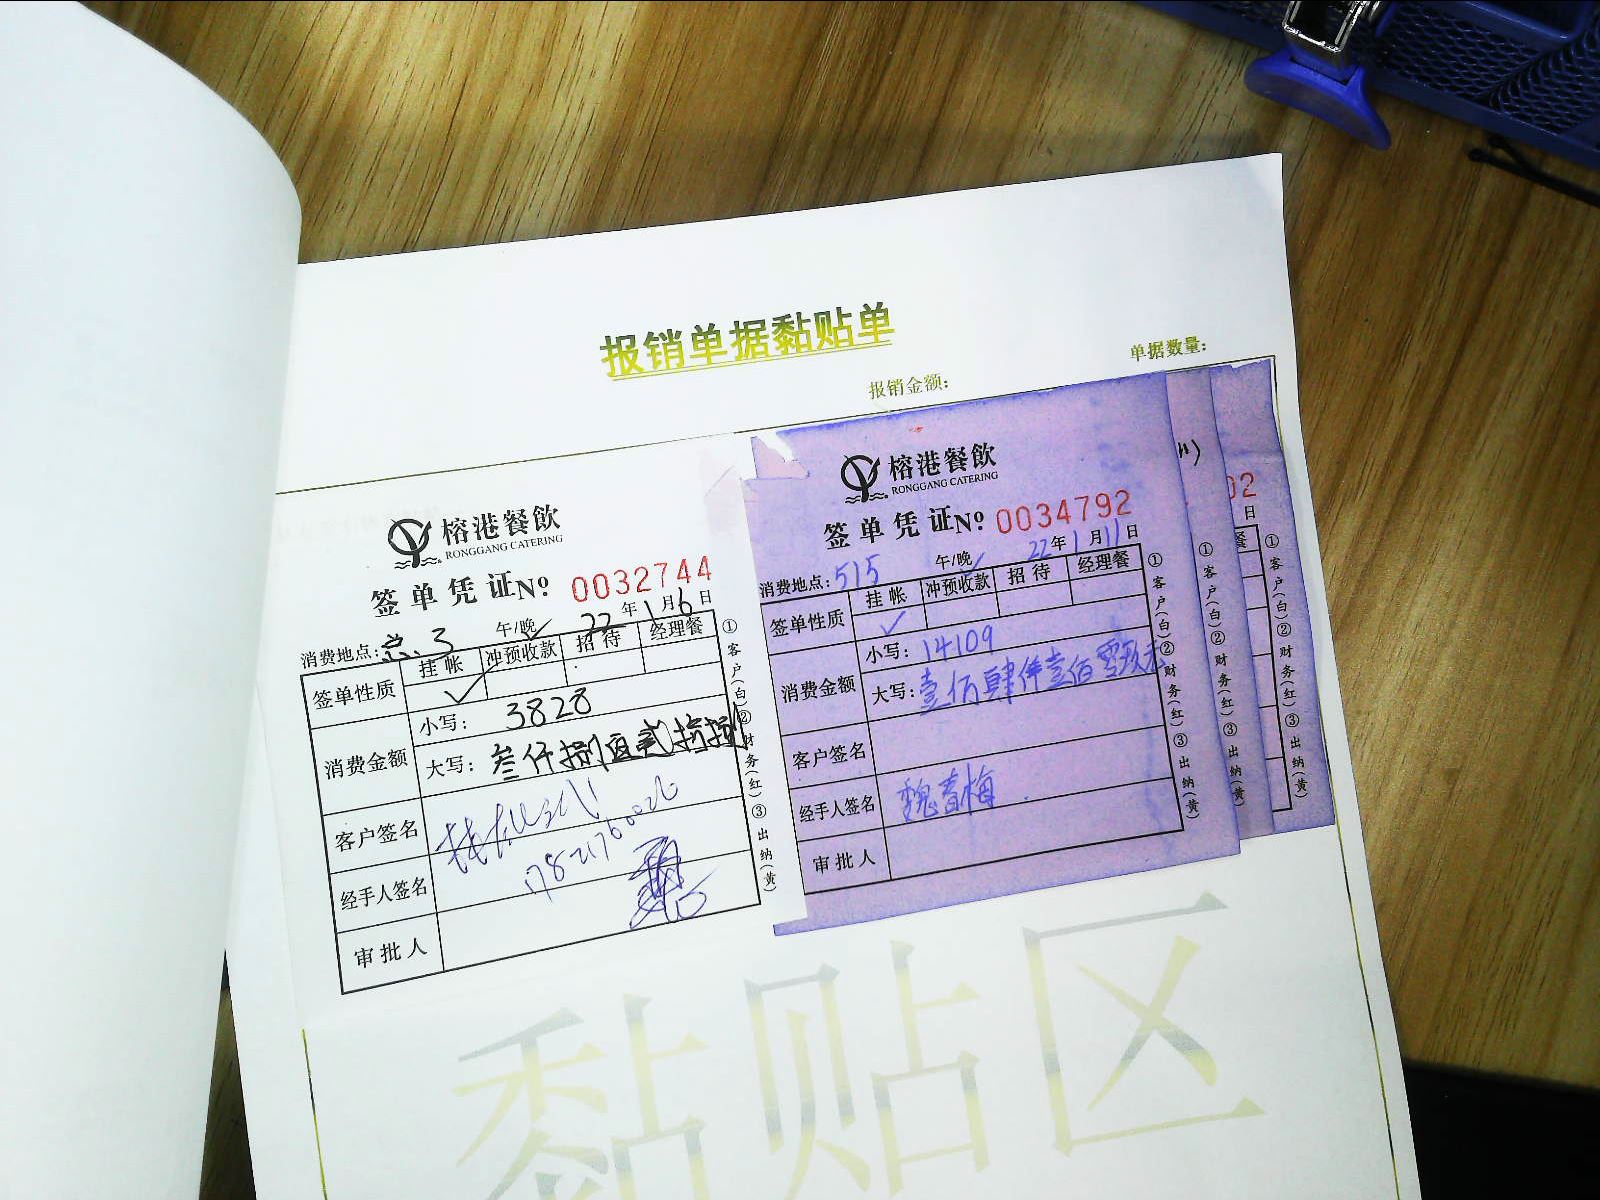 报销单据黏贴单
单据数量:
报销金额:
榕港餐飲
RONGGANG CATERING
签单凭证No 0032744
消费地点: 总.3 午/晚 22年1月6日
签单性质 挂帐 冲预收款 招待 经理餐
消费金额 小写: 3828
大写: 叁仟捌佰贰拾捌
客户签名
经手人签名
审批人
①客户(白)②财务(红)③出纳(黄)
榕港餐飲
RONGGANG CATERING
签单凭证No 0034792
消费地点: 515 午/晚 22年1月11日
签单性质 挂帐 冲预收款 招待 经理餐
消费金额 小写: 14109
大写: 壹佰肆仟壹佰零玖元
客户签名
经手人签名 魏春梅
审批人
①客户(白)②财务(红)③出纳(黄)
①客户(白)②财务(红)③出纳(黄)
02
日
餐
①客户(白)②财务(红)③出纳(黄)
黏贴区